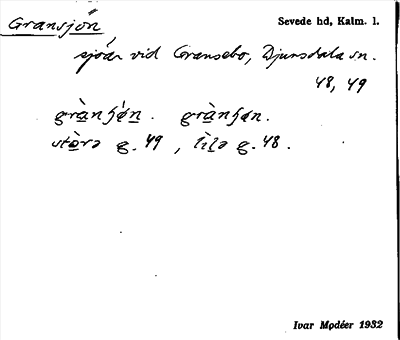 Gransjön, Sevede hd, Kalm. l.
sjöar vid Gransebo, Djursdala sn.
48, 49
grànʃǿn. grànʃøn.
stòrə g. 49, lìlə g. 48.
Ivar Modéer 1932